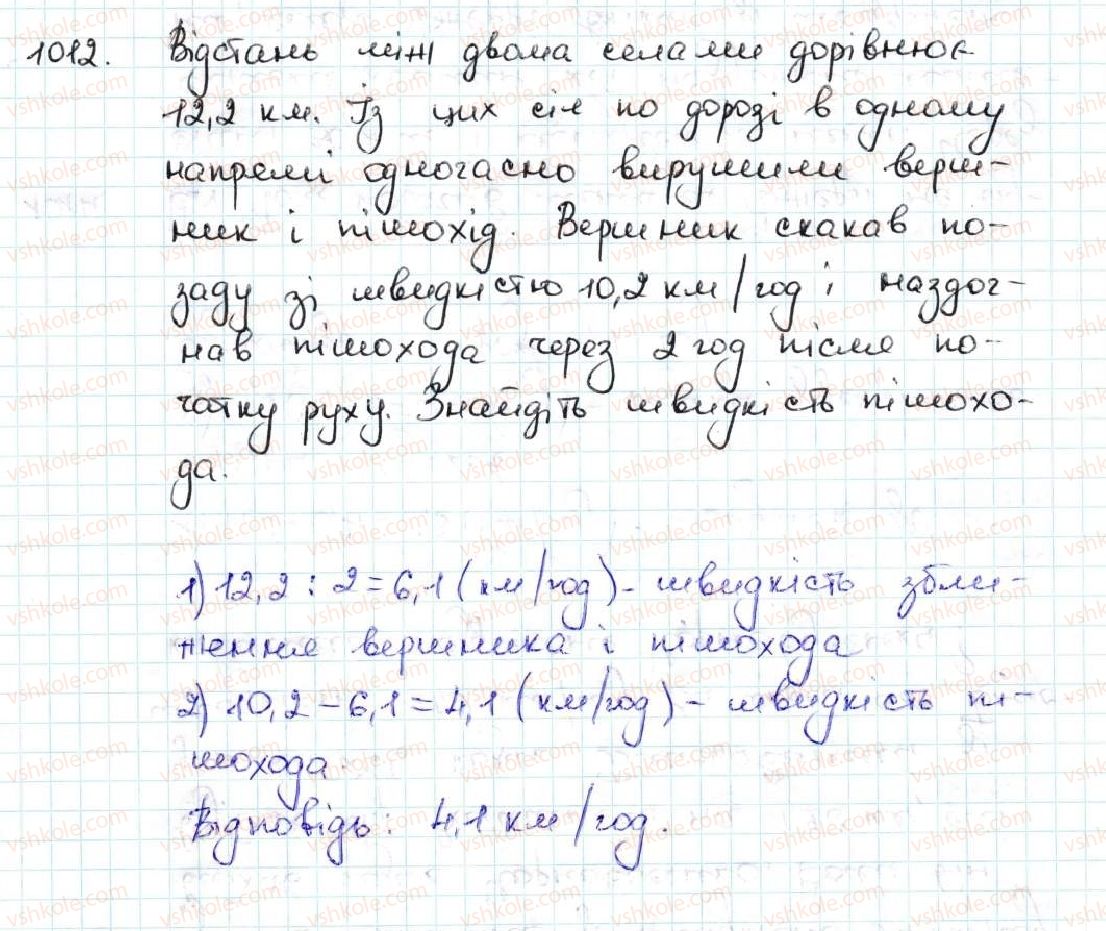 1012. Відстань між двома селами дорівнює
12,2 км. Із цих сіл по дорозі в одному
напрямі одночасно вирушили верш-
ник і пішохід. Вершник скакав по-
заду зі швидкістю 10,2 км/год і наздог-
нав пішохода через 2 год після по-
чатку руху. Знайдіть швидкість пішохо-
да.
1) 12,2 : 2 = 6,1 (км/год) - швидкість збли-
ження вершника і пішохода
2) 10,2 - 6,1 = 4,1 (км/год) - швидкість пі-
шохода.
Відповідь: 4,1 км/год.